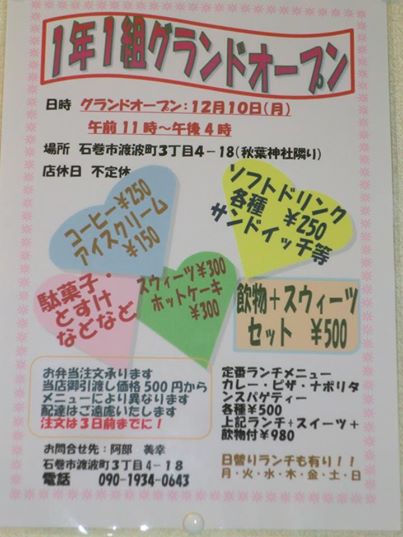 1年1組グランドオープン
日時 グランドオープン:12月10日(月)
午前11時~午後4時
場所 石巻市渡波町3丁目4-18(秋葉神社隣り)
店休日 不定休
コーヒー¥250
アイスクリーム
¥150
ソフトドリンク
各種 ¥250
サンドイッチ等
駄菓子・
とすけ
などなど
スウィーツ¥300
ホットケーキ
¥300
飲物+スウィーツ
セット ¥500
お弁当注文承ります
当店御引渡し価格500円から
メニューにより異なります
配達はご遠慮いたします
注文は3日前までに!
定番ランチメニュー
カレー・ピザ・ナポリタ
ンスパゲティー
各種¥500
上記ランチ+スイーツ+
飲物付¥980
お問合せ先:阿部 美幸
石巻市渡波町3丁目4-18
電話 090-1934-0643
日替りランチも有り!!
月・火・水・木・金・土・日